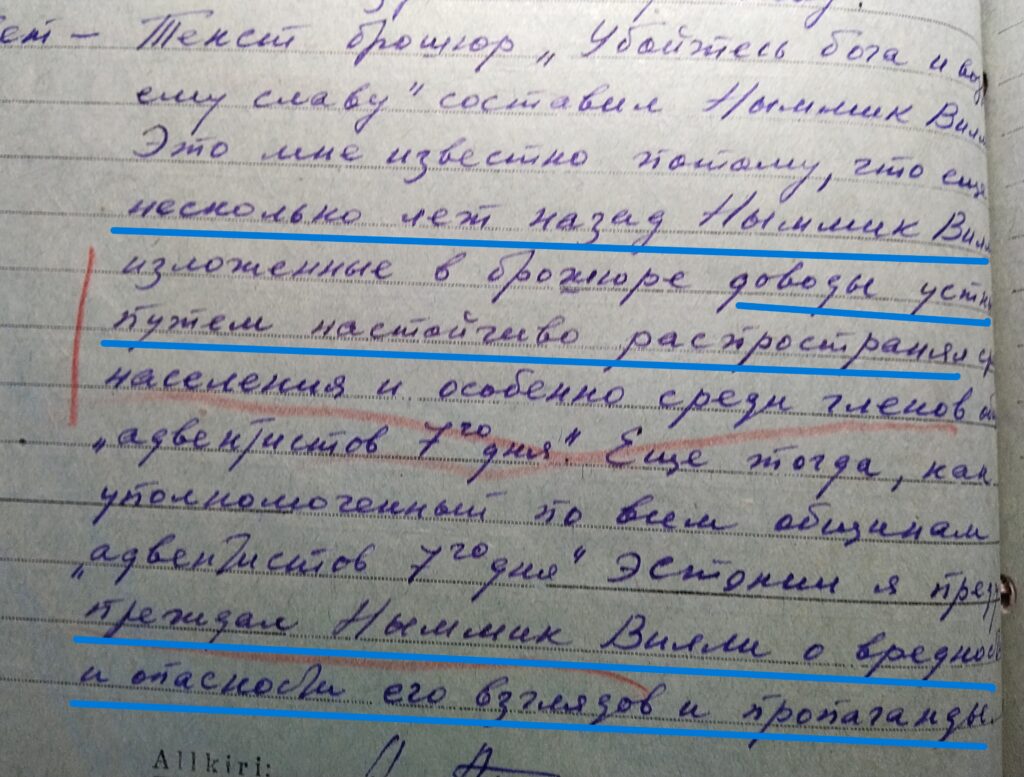 ет – Текст брошюр „Убойтесь бога и воз
ему славу" составил Ныммик Вилл
Это мне известно потому, что еще
несколько лет назад Ныммик Вилл
изложенные в брожюре доводы устн
путем настойчиво распространял ср
населения и особенно среди членов об
„адвентистов 7го дня". Еще тогда, как
уполномоченный по всем общинам
„адвентистов 7го дня" Эстонии я пред
преждал Ныммик Вилли о вредност
и опасности его взглядов и пропаганды
Allkiri: